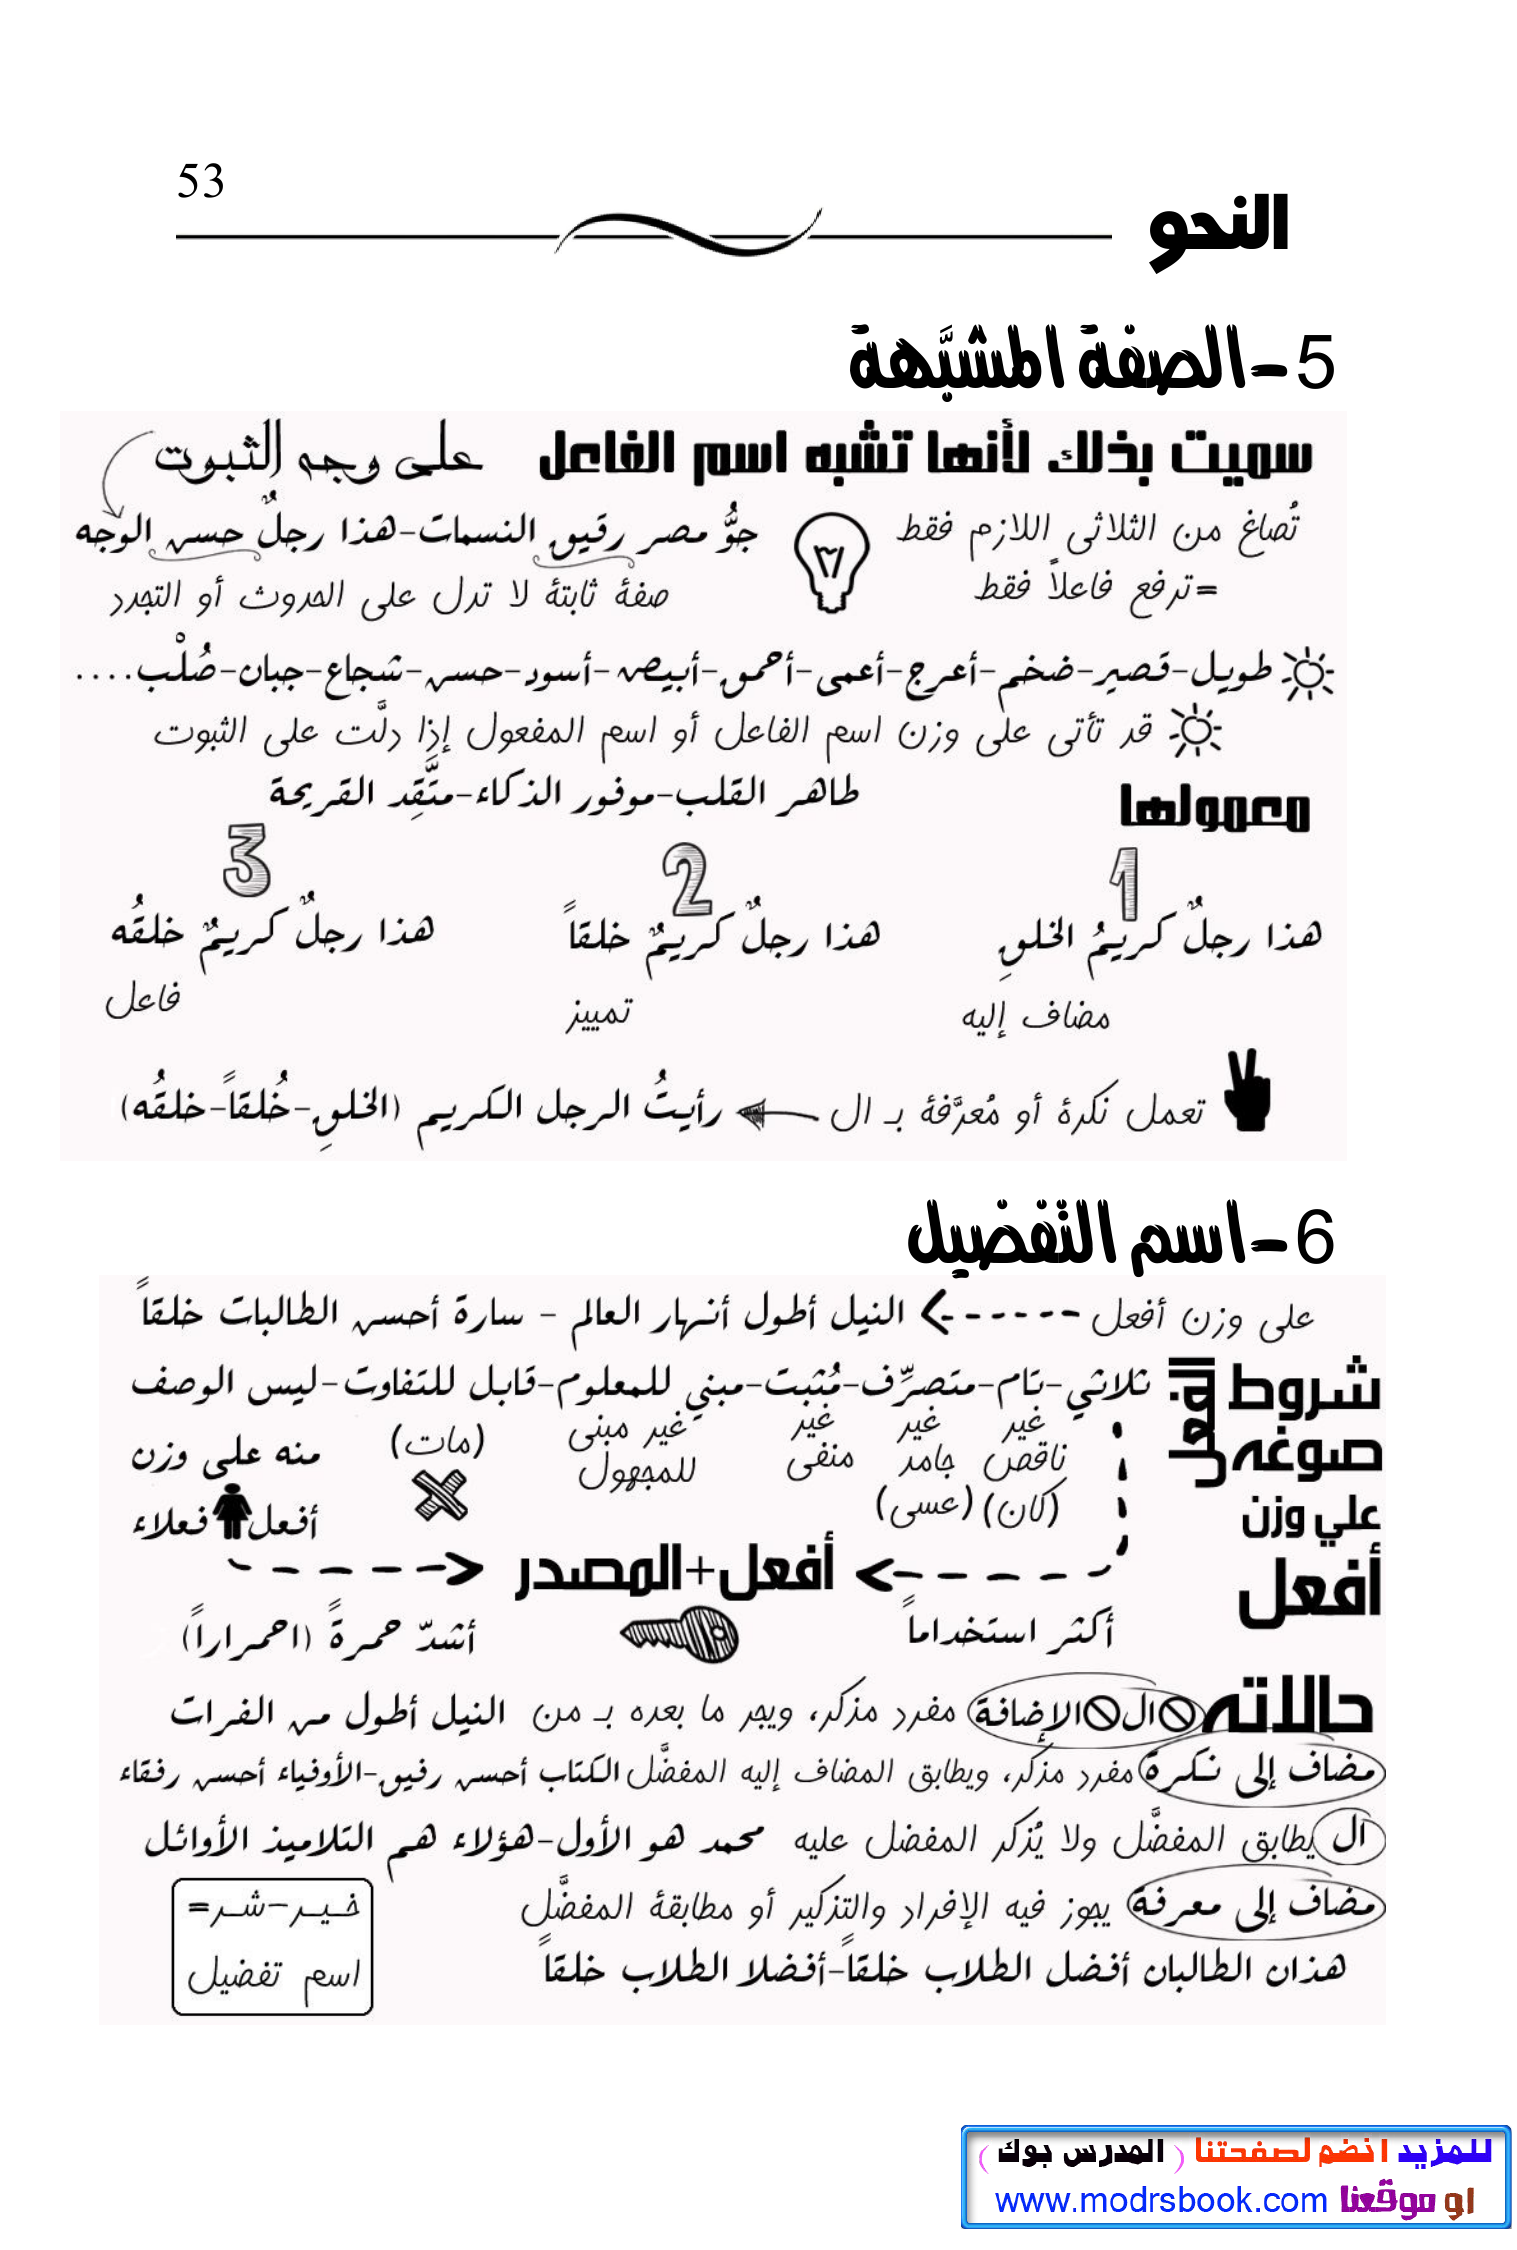 53
النحو
5-الصفة المشبَّهة
سميت بذلك لأنها تشبه اسم الفاعل على وجه الثبوت
تُصاغ من الثلاثى اللازم فقط جوُّ مصر رقيق النسمات-هذا رجلٌ حسن الوجه
=ترفع فاعلاً فقط صفة ثابتة لا تدل على الحدوث أو التجدد
طويل-قصير-ضخم-أعرج-أعمى-أحمق-أبيض-أسود-حسن-شجاع-جبان-صُلْب....
قد تأتى على وزن اسم الفاعل أو اسم المفعول إذا دلَّت على الثبوت
طاهر القلب-موفور الذكاء-متَّقِد القريحة
معمولها
1 2 3
هذا رجلٌ كريمُ الخلقِ هذا رجلٌ كريمٌ خلقاً هذا رجلٌ كريمٌ خلقُه
مضاف إليه تمييز فاعل
تعمل نكرة أو مُعرَّفة بـ ال رأيتُ الرجل الكريم (الخلقِ-خُلقاً-خلقُه)
6-اسم التفضيل
على وزن أفعل النيل أطول أنهار العالم - سارة أحسن الطالبات خلقاً
شروط الفعل ثلاثي-تام-متصرِّف-مُثبت-مبني للمعلوم-قابل للتفاوت-ليس الوصف
صوغه غير ناقص غير جامد غير منفى غير مبنى للمجهول (مات) منه على وزن
علي وزن (كان) (عسى) أفعل فعلاء
أفعل أفعل+المصدر
أكثر استخداماً أشدّ حمرةً (احمراراً)
حالاته ال الإضافة مفرد مذكر، ويجر ما بعده بـ من النيل أطول من الفرات
مضاف إلى نكرة مفرد مذكر، ويطابق المضاف إليه المفضَّل الكتاب أحسن رفيق-الأوفياء أحسن رفقاء
ال يطابق المفضَّل ولا يُذكر المفضل عليه محمد هو الأول-هؤلاء هم التلاميذ الأوائل
مضاف إلى معرفة يجوز فيه الإفراد والتذكير أو مطابقة المفضَّل
هذان الطالبان أفضل الطلاب خلقاً-أفضلا الطلاب خلقاً
خير-شر=
اسم تفضيل
للمزيد انضم لصفحتنا ( المدرس بوك )
او موقعنا www.modrsbook.com